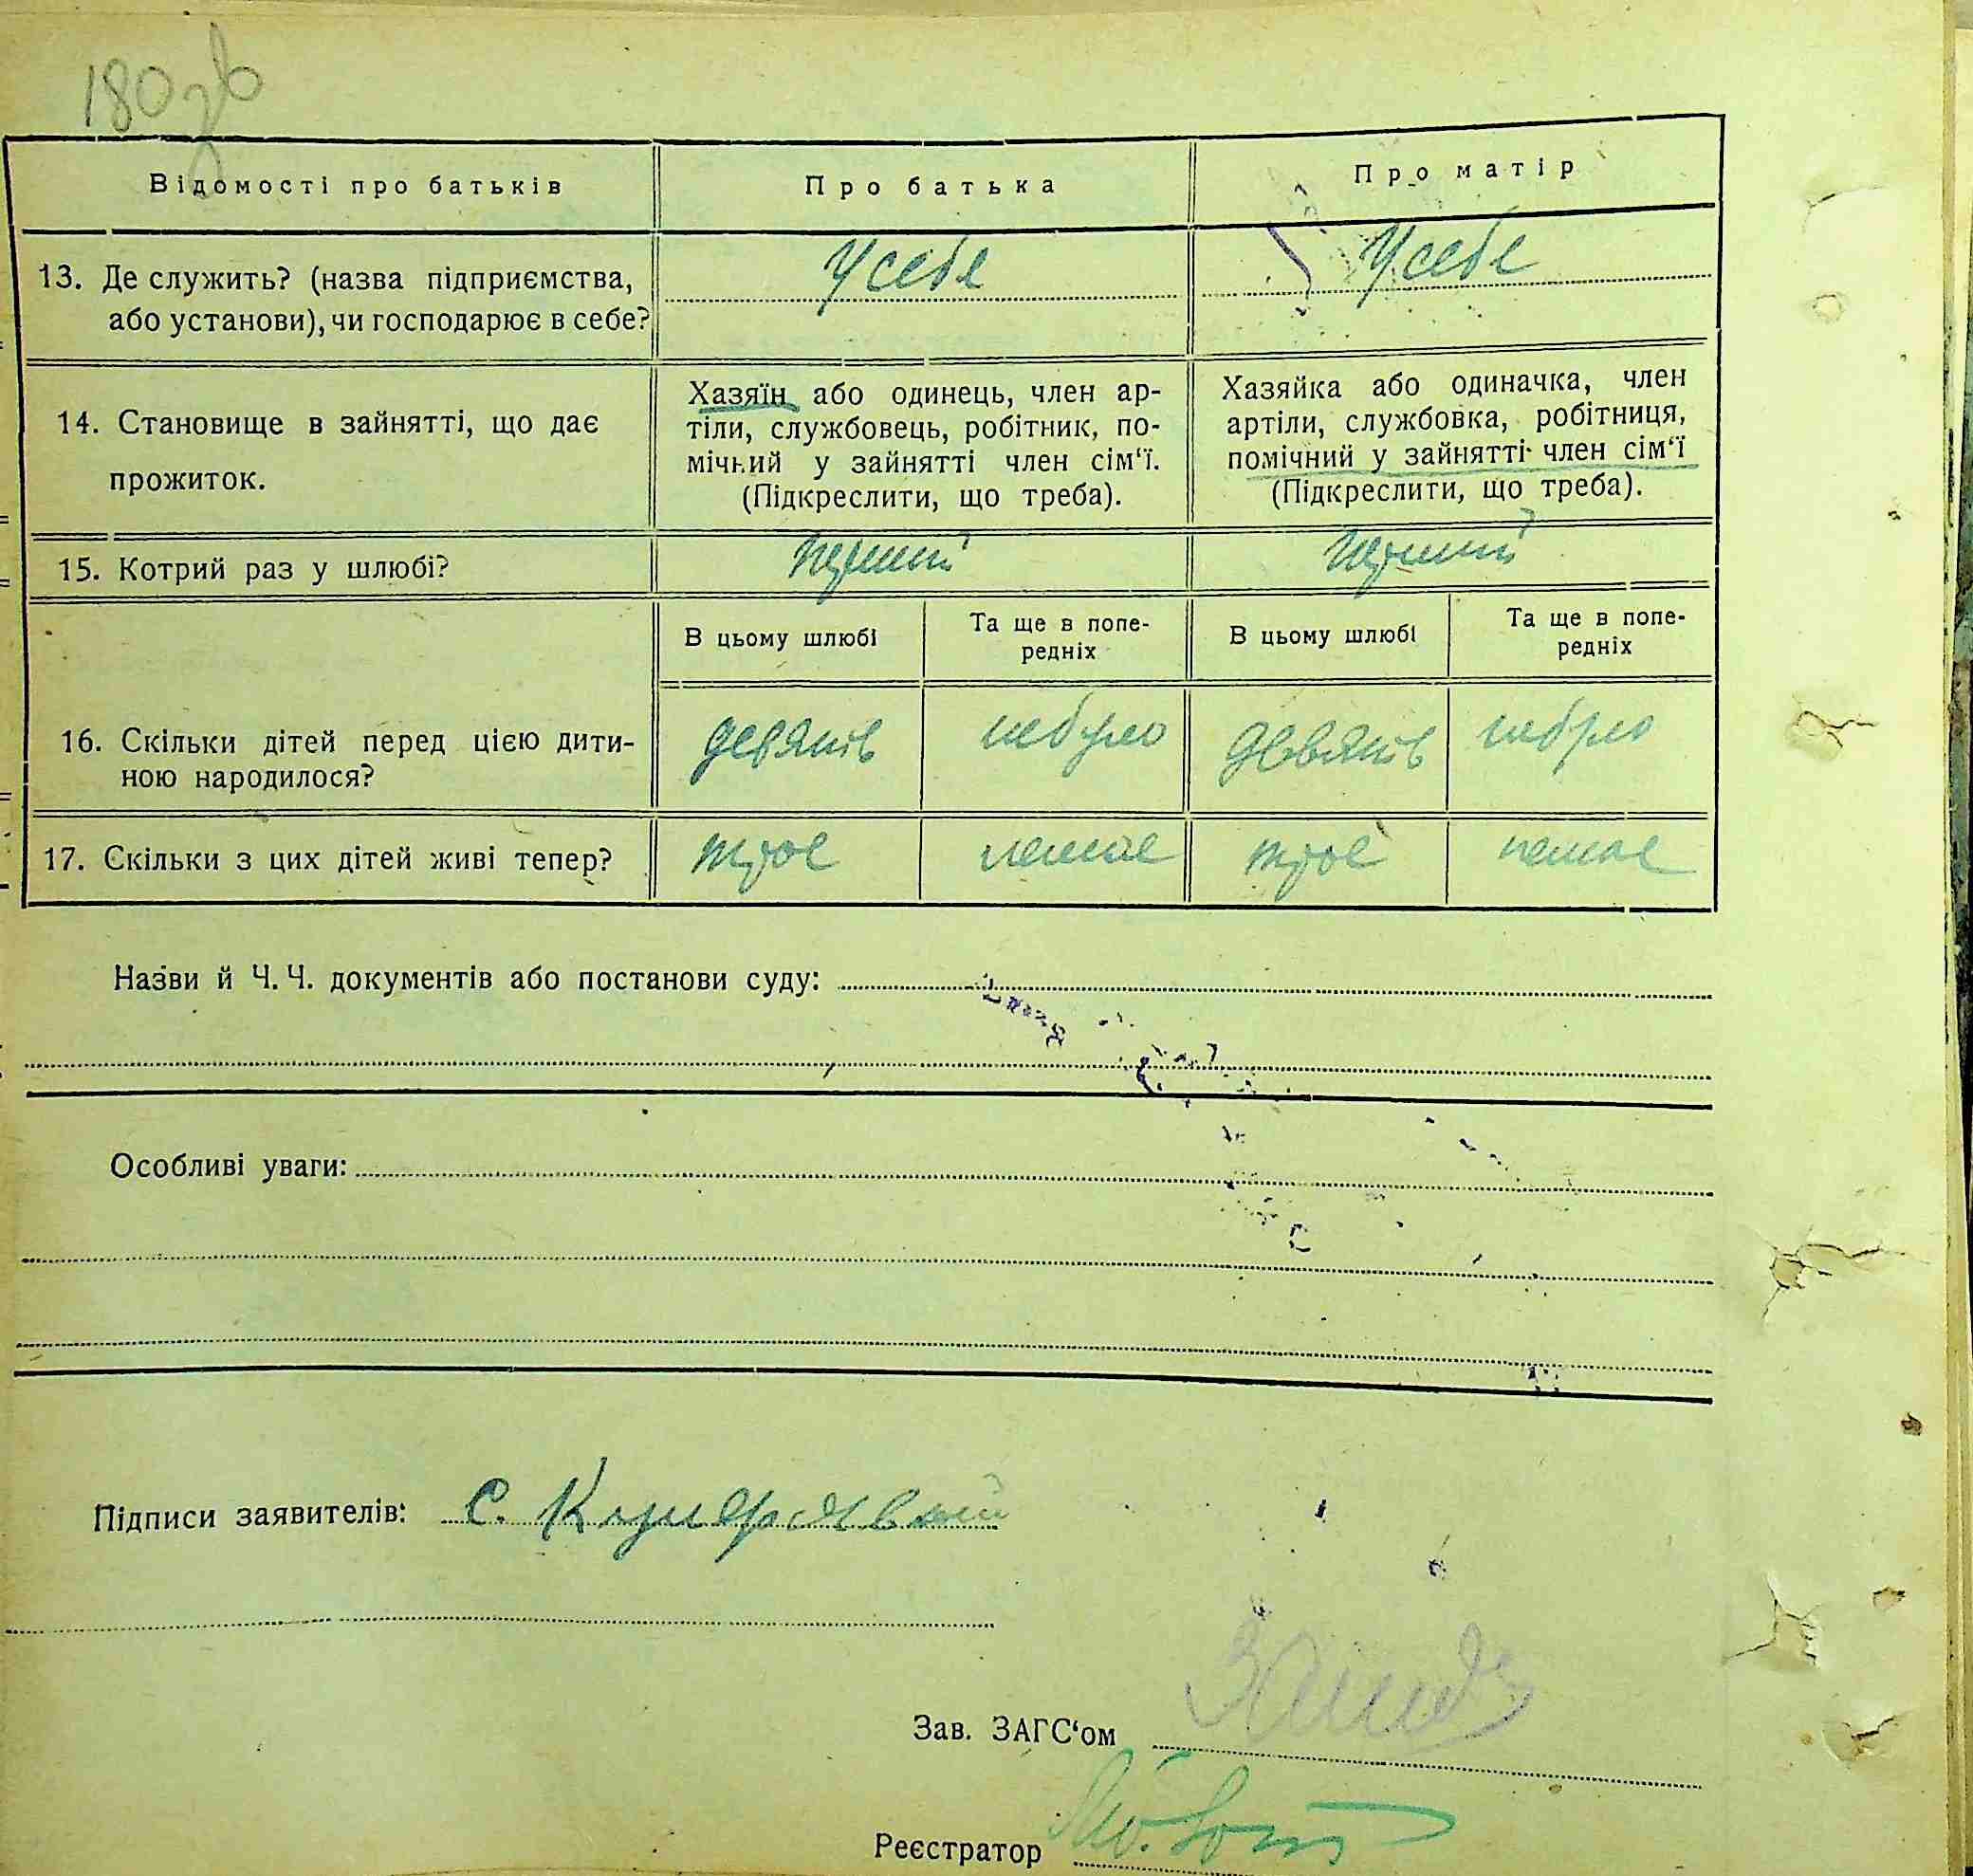 180 зв
Відомості про батьків
Про батька
Про матір
13. Де служить? (назва підприємства,
або установи), чи господарює в себе?
У себе
У себе
14. Становище в зайнятті, що дає
прожиток.
Хазяїн або одинець, член ар-
тіли, службовець, робітник, по-
мічний у зайнятті член сім‘ї.
(Підкреслити, що треба).
Хазяйка або одиначка, член
артіли, службовка, робітниця,
помічний у зайнятті член сім‘ї
(Підкреслити, що треба).
15. Котрий раз у шлюбі?
перший
перший
В цьому шлюбі
Та ще в попе-
редніх
В цьому шлюбі
Та ще в попе-
редніх
16. Скільки дітей перед цією дити-
ною народилося?
девять
небуло
девять
небуло
17. Скільки з цих дітей живі тепер?
троє
немає
троє
немає
Назви й Ч. Ч. документів або постанови суду:
Особливі уваги:
Підписи заявителів: С.
Зав. ЗАГС‘ом
Реєстратор